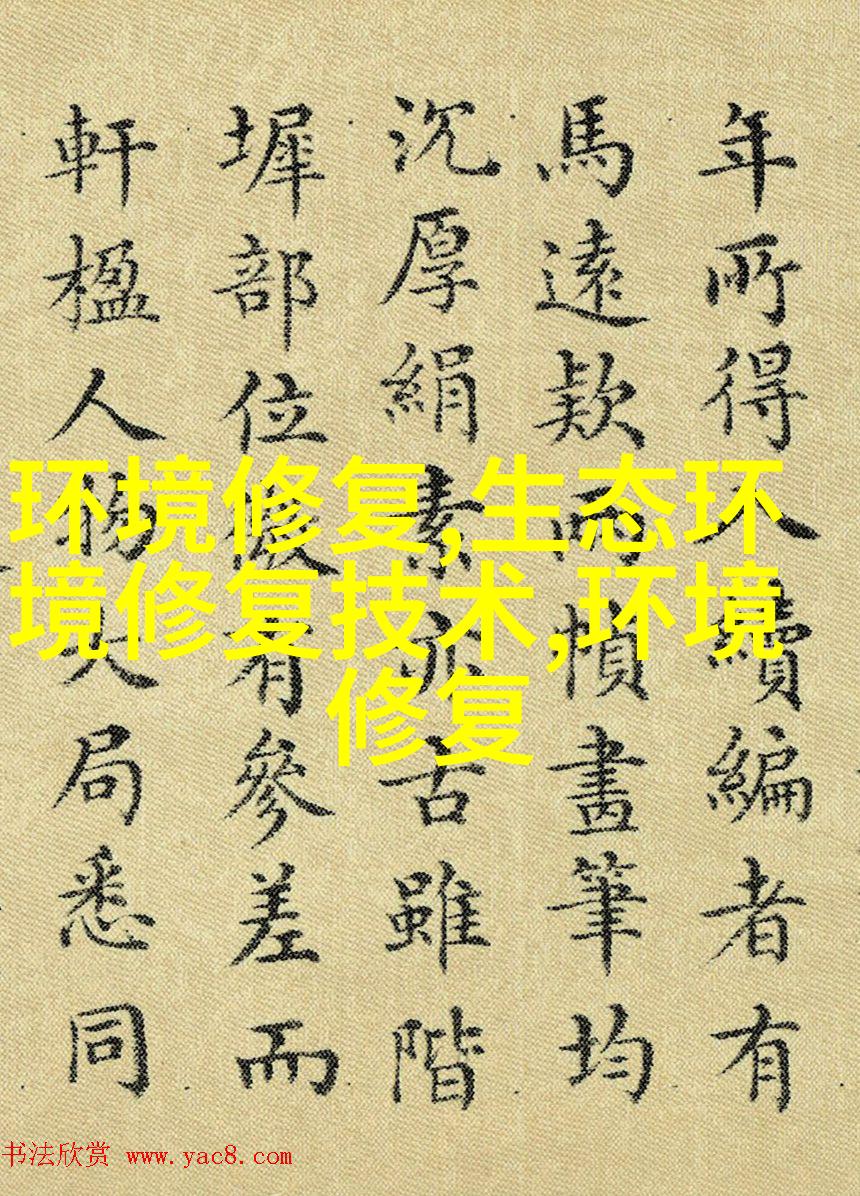 年所得入續編者有
馬遠款兩幀畫筆均
沉厚絹素亦古雖階
墀部位微有參差而
軒楹人物大局悉同
环境修复,生态环
境修复技术,环境
修复
书法欣赏 www.yac8.com